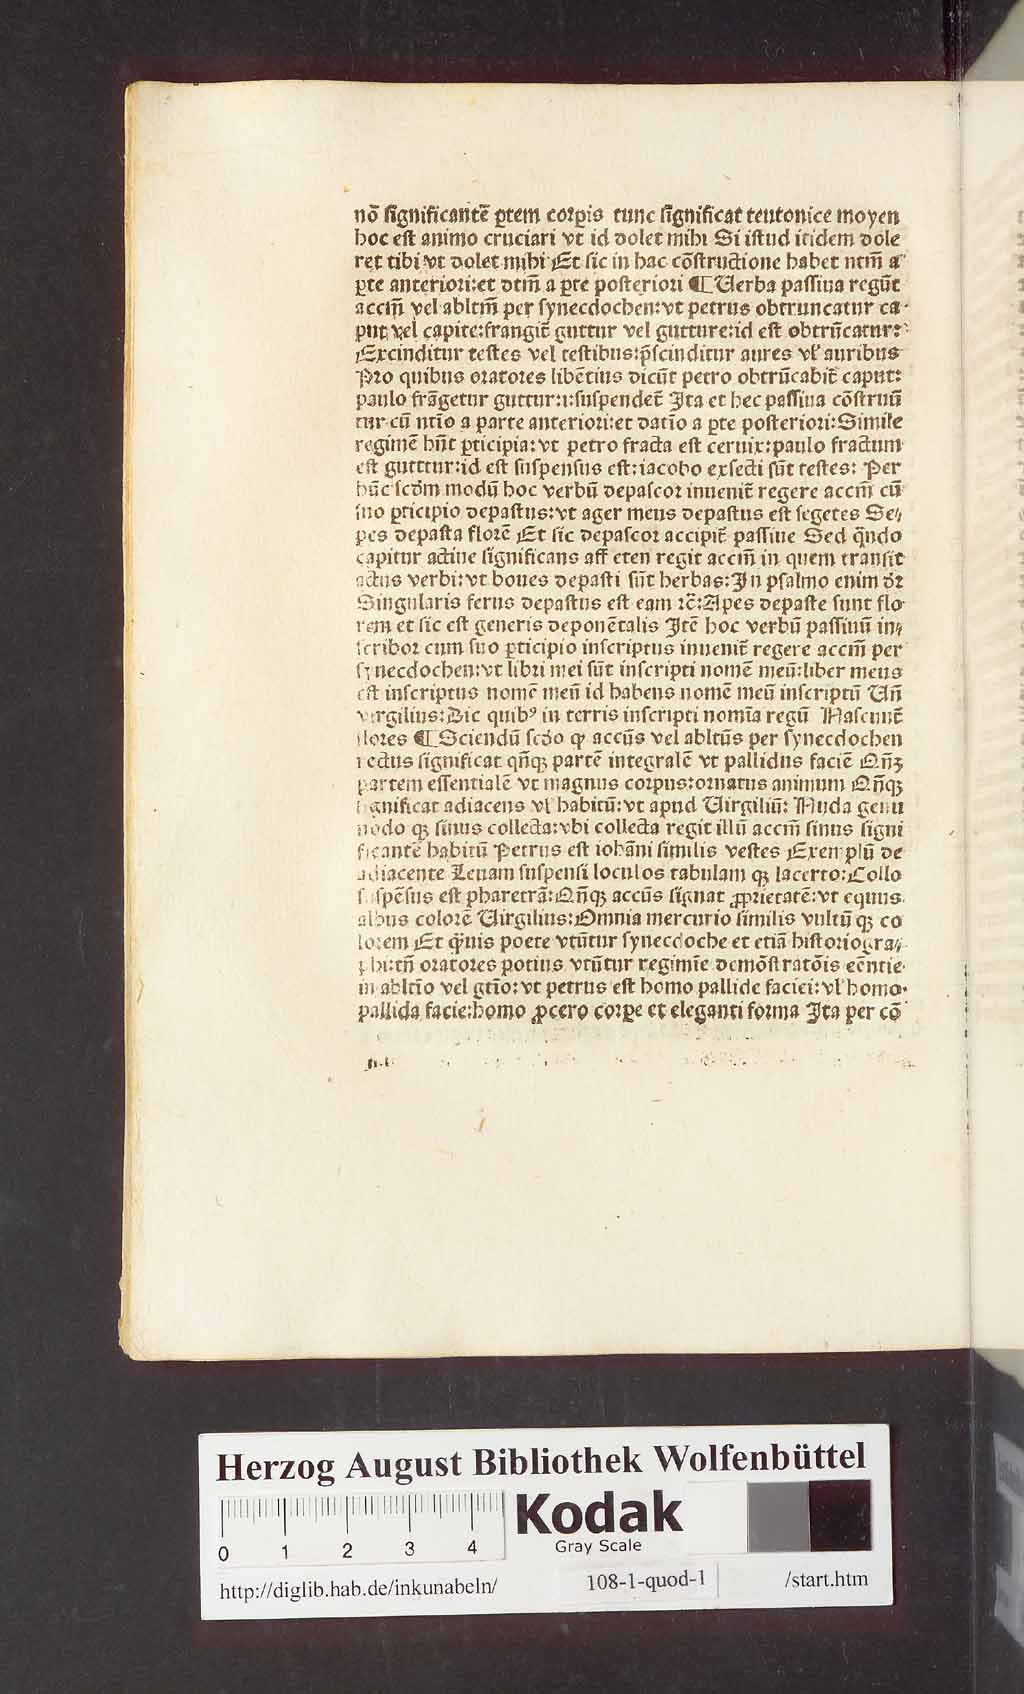 nō significantē ꝑtem corꝑis tunc significat teutonice moyen
hoc est animo cruciari vt id dolet mihi Si istud itidem dole
ret tibi vt dolet mihi Et sic in hac cōstructione habet ntm̄ a
ꝑte anteriori:et dtm̄ a ꝑte posteriori ¶ Uerba passiua regūt
accm̄ vel abltm̄ per synecdochen:vt petrus obtruncatur ca
put vel capite:frangit̄ guttur vel gutture:id est obtrūcatur:
Excinditur testes vel testibus:p̄scinditur aures vl' auribus
Pro quibus oratores libētius dicūt petro obtrūcabit̄ caput:
paulo frāgetur guttur:ı:suspendet̄ Ita et hec passiua cōstruū
tur cū ntīo a parte anteriori:et datīo a ꝑte posteriori:Simile
regimē hn̄t ꝑticipia:vt petro fracta est ceruix:paulo fractum
est gutttur:id est suspensus est:iacobo exsecti sūt testes: Per
hūc scdm̄ modū hoc verbū depascor inuenit̄ regere accm̄ cū
suo ꝑticipio depastus:vt ager meus depastus est segetes Se⸗
pes depasta florē Et sic depascor accipit̄ passiue Sed qn̄do
capitur actiue significans aff eten regit accm̄ in quem transit
actus verbi:vt boues depasti sūt herbas:In psalmo enim dr̄
Singularis ferus depastus est eam ꝛc̄:Apes depaste sunt flo
rem et sic est generis deponētalis Itē hoc verbū passiuū in⸗
scribor cum suo ꝑticipio inscriptus inuenit̄ regere accm̄ per
synecdochen:vt libri mei sūt inscripti nomē meū:liber meus
est inscriptus nomē meū id habens nomē meū inscriptū Un̄
virgilius:Dic quibꝰ in terris inscripti nomīa regū Nascunt̄
flores ¶ Sciendū scdo ꝙ accūs vel abltūs per synecdochen
rectus significat qn̄qꝫ partē integralē vt pallidus faciē Qn̄qꝫ
partem essentialē vt magnus corpus:ornatus animum Qn̄qꝫ
significat adiacens vl' habitū:vt apud Uirgiliū: Nuda genu
nodo qꝫ sinus collecta:vbi collecta regit illū accm̄ sinus signi
ficantē habitū Petrus est iohāni similis vestes Exemplū de
adiacente Leuam suspensi loculos tabulam qꝫ lacerto:Collo
suspēsus est pharetrā:Qn̄qꝫ accūs signat ꝓprietatē:vt equus
albus colorē Uirgilius:Omnia mercurio similis vultū qꝫ co
lorem Et q̄uis poete vtūtur synecdoche et etiā historiogra⸗
phi:tn̄ oratores potius vtūtur regimīe demōstratōis eēntie
in abltīo vel gtīo:vt petrus est homo pallide faciei:vl' homo
pallida facie:homo ꝓcero corꝑe et eleganti forma Ita per cō
Herzog August Bibliothek Wolfenbüttel
0 1 2 3 4
Kodak
Gray Scale
http://diglib.hab.de/inkunabeln/ 108-1-quod-1 /start.htm